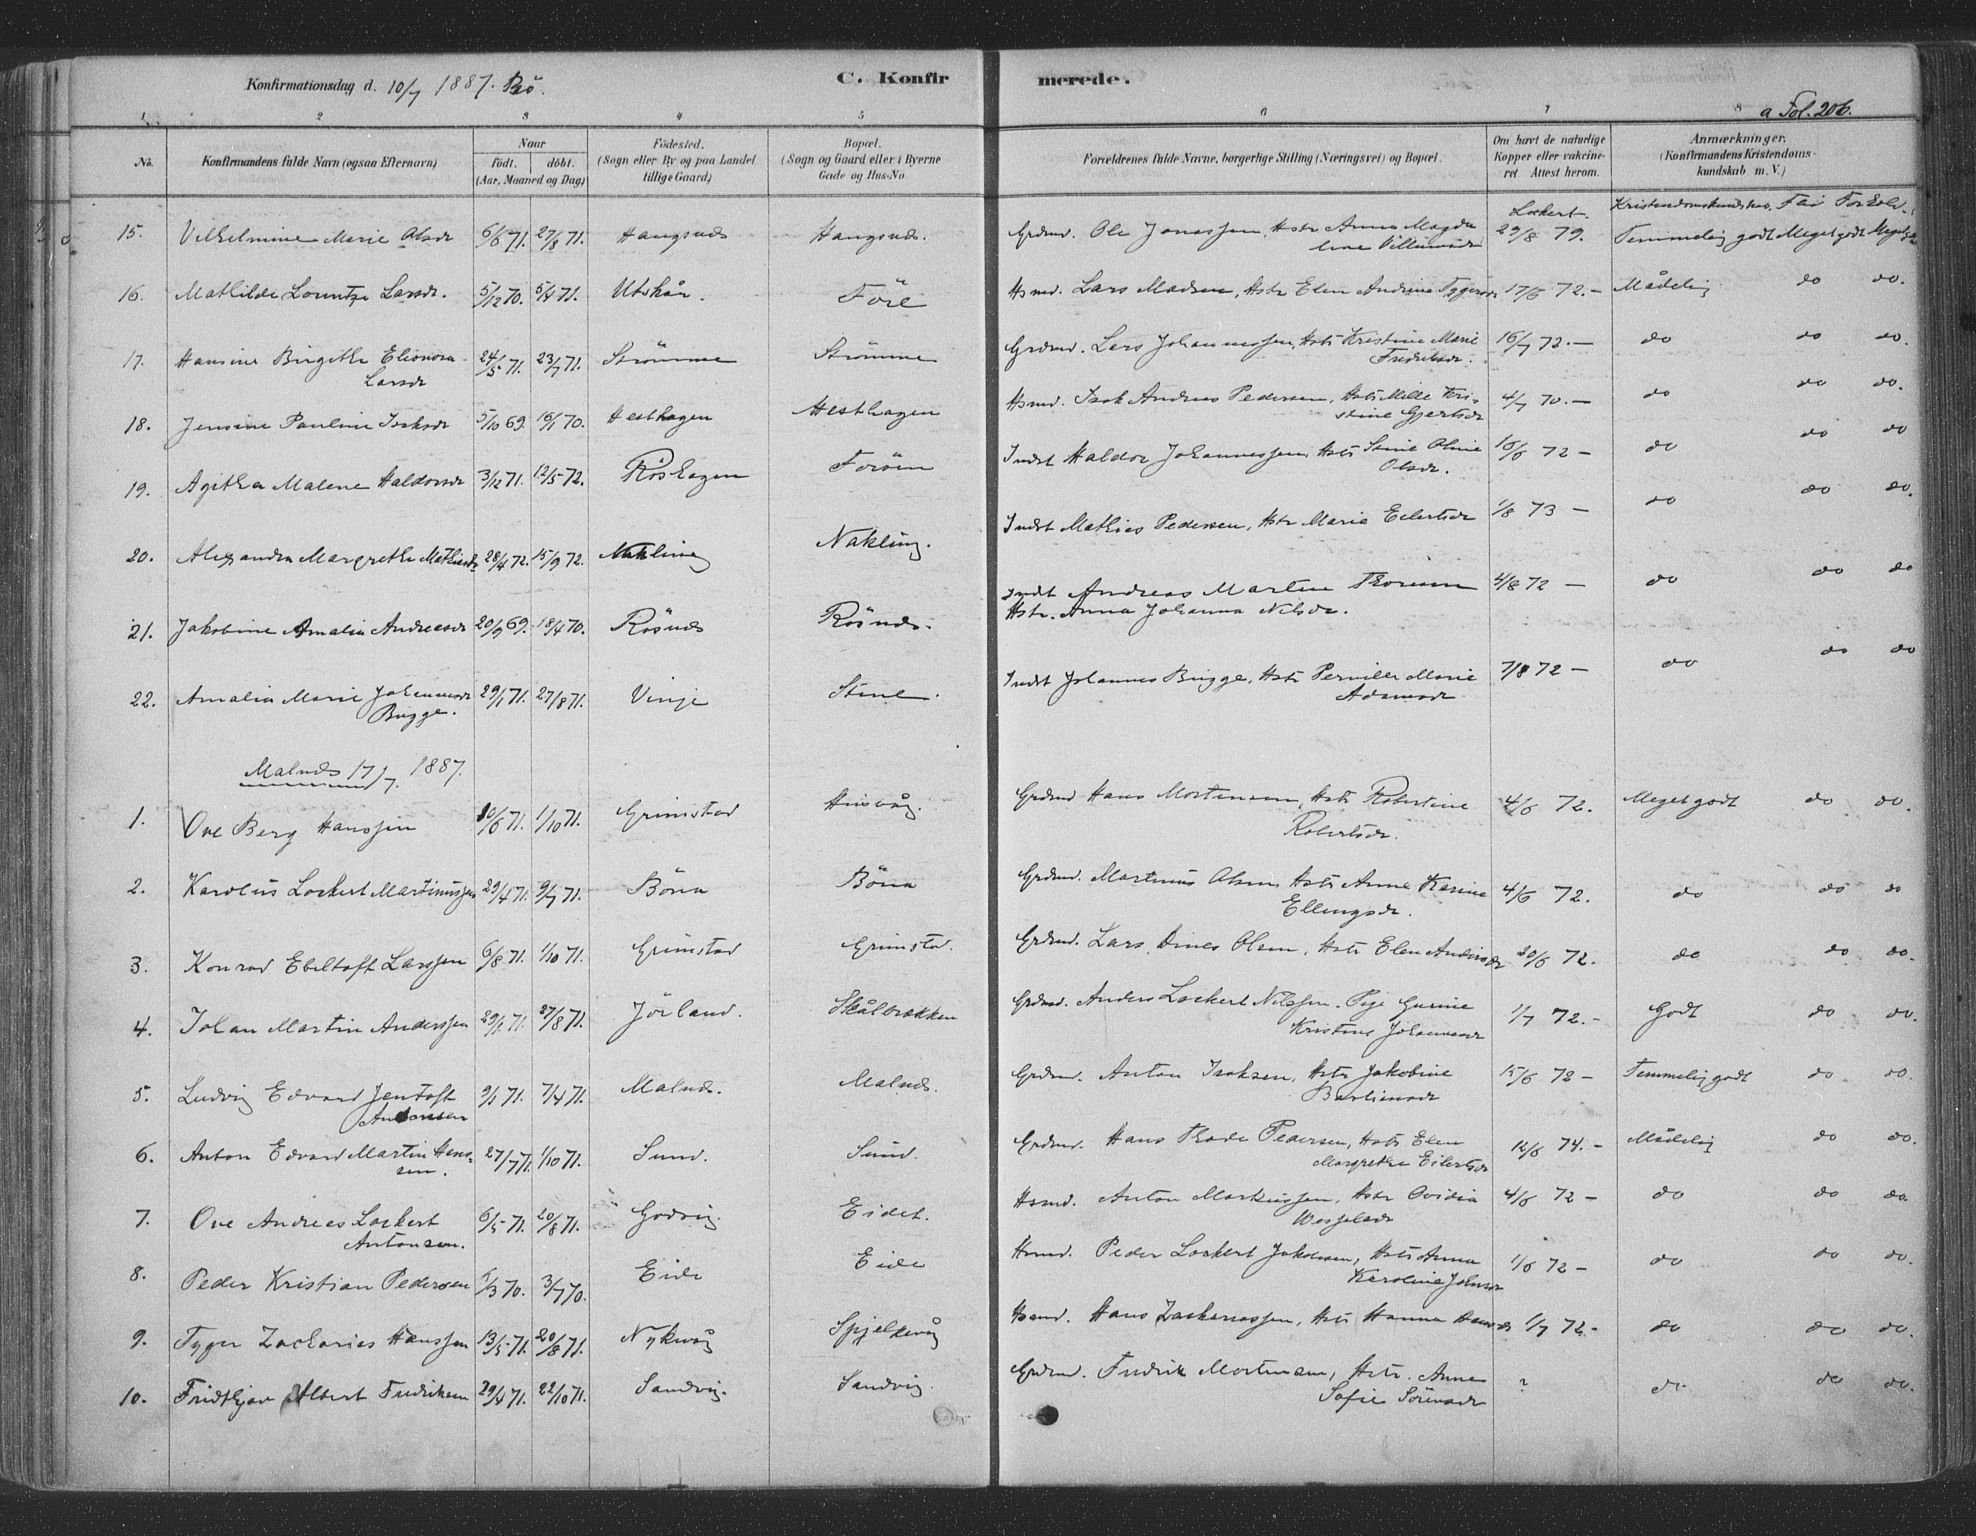 Konfirmationsdag d. 10/7 1887. Bö.
C. Konfir
merede.
a Fol. 206.
1. 2 3 4 5 6 7 8
No.
Konfirmandens fulde Navn (ogsaa Efternavn)
Naar
født. døbt.
(Aar, Maaned og Dag)
Fødested.
(Sogn eller By og paa Landet
tillige Gaard)
Bopæl.
(Sogn og Gaard eller i Byerne
Gade og Hus-No.
Forældrenes fulde Navne, borgerlige Stilling (Næringsvei) og Bopæl.
Om havt de naturlige
Kopper eller vakcine-
ret Attest herom.
Anmærkninger.
(Konfirmandens Kristendoms-
kundskab m. V.)
15. Vilhelmine Marie Olsdr 6/6 71. 27/8 71. Haugsnes Haugsnes. Grdmd. Ole Jonassen, Hstr Anna Magda
Lockert
29/8 79. Temmelig godt Meget godt
16. Mathilde Lorentze Larsdr. 5/12 70. 5/4 71. Utskår. Före Hsmd. Lars Madsen, Hstr Elen Andrine Tygersdr 17/6 72.- Mådelig do do.
17. Hansine Birgitte Elionora
Larsdr 24/5 71. 23/7 71. Strömme Strömme Grdmd. Lars Johannessen, Hstr Kristine Marie
Fredriksdr. 16/7 72.- do do do.
18. Jensine Pauline Isaksdr 5/10 69. 16/1 70. Hesthagen Hesthagen Hsmd. Isak Andreas Pedersen, Hstr Mille Kri-
stine Gjertsdr 4/7 70.- do do do.
19. Agithe Malene Haldorsdr 3/12 71. 12/5 72. Röshagen Foröen Indst Haldor Johannessen, Hstr Stine Oline
Olsdr. 16/6 72 - do do do
20. Alexandra Margrethe Mathiasdr 28/4 72. 15/9 72. Nakling Nakling. Indst Mathias Pedersen, Hstr Marie Eilertsdr 1/8 73 - do do do.
21. Jakobine Amalia Andreasdr 20/9 69. 18/4 70. Rösnes Rösnes. Indst Andreas Martin Thoresen
Hstr. Anna Johanna Nilsdr. 4/8 72 - do do do
22. Amalia Marie Johannesdr
Brygge. 29/1 71. 27/8 71. Vinje Stene. Indst Johannes Brygge, Hstr Pernille Marie
Adamsdr 7/8 72 - do do do
Malnes 17/7 1887.
1. Ove Berg Hanssen 10/6 71. 1/10 71. Grimstad Husvåg. Grdmd Hans Mortensen, Hstr Robertine
Robertsdr. 4/6 72. Meget godt do do.
2. Karolus Lockert Martinussen 29/4 71. 9/7 71. Böna Böna Grdmd. Martinus Olsen, Hstr Anne Karine
Ellingsdr. 4/6 72. do do do
3. Konrad Ebeltoft Larssen 6/8 71. 1/10 71. Grimstad Grimstad. Grdmd. Lars Dines Olsen, Hstr Elen Andersdr 20/6 72. do do do.
4. Johan Martin Anderssen 29/1 71. 27/8 71. Jörland. Skålbrækken Grdmd. Anders Lockert Nilssen. Pige Gurine
Kristine Johannesdr 1/7 72.- Godt do do.
5. Ludvig Edvard Jentoft
Antonsen 9/1 71. 7/4 71. Malnes. Malnes. Grdmd. Anton Isaksen, Hstr Jakobine
15/6 72 - Temmelig godt do do.
6. Anton Edvard Martin Hans-
sen. 27/7 71. 1/10 71. Sund. Sund. Grdmd. Hans Thode Pedersen, Hstr Elen
Margrethe Eilertsdr 12/6 74.- Mådelig do do.
7. Ove Andreas Lockert
Antonsen. 6/5 71. 20/8 71. Godvig. Eidet. Hsmd. Anton Markussen, Hstr Ovidia
Wesselsdr 4/6 72 - do do do.
8. Peder Kristian Pedersen 1/3 70. 3/7 70. Eide Eide Hsmd. Peder Lockert Jakobsen, Hstr Anna
Karoline Johnsdr 1/6 72 - do do do.
9. Tyger Zacharias Hanssen 13/5 71. 20/8 71. Nykvåg Spjelkvåg Hsmd. Hans Zachariassen, Hstr Hanna Hansdr 1/7 72.- do do do.
10. Fridthjov Albert Fredriksen 29/4 71. 22/10 71. Sandvig. Sandvig. Grdmd. Fredrik Mortensen, Hstr. Anne
Sofie Sörensdr ? do. do do.